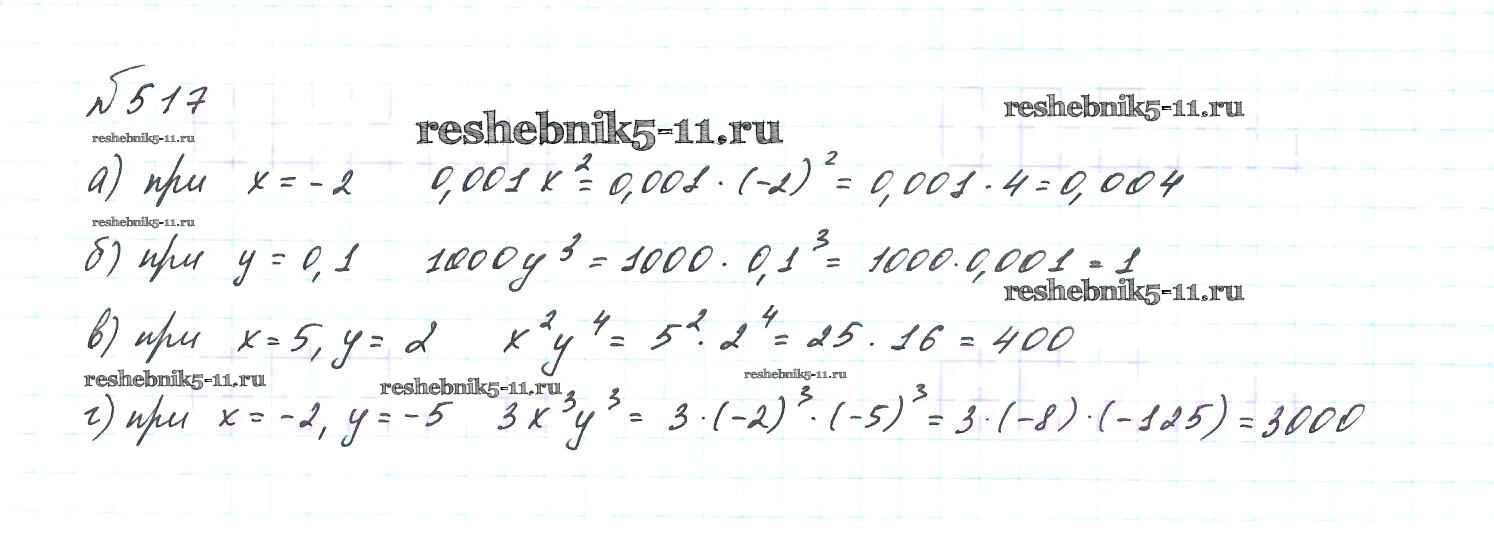 №517
reshebnik5-11.ru
reshebnik5-11.ru
reshebnik5-11.ru
а) при x = -2 0,001x² = 0,001 · (-2)² = 0,001 · 4 = 0,004
reshebnik5-11.ru
б) при y = 0,1 1000y³ = 1000 · 0,1³ = 1000 · 0,001 = 1
reshebnik5-11.ru
в) при x = 5, y = 2 x²y⁴ = 5² · 2⁴ = 25 · 16 = 400
reshebnik5-11.ru
reshebnik5-11.ru
reshebnik5-11.ru
г) при x = -2, y = -5 3x³y³ = 3 · (-2)³ · (-5)³ = 3 · (-8) · (-125) = 3000